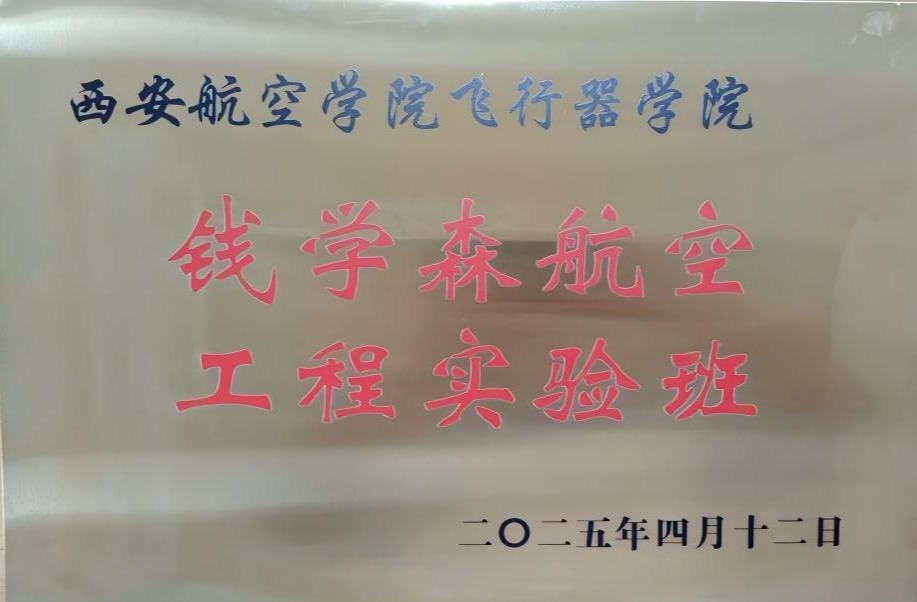 西安航空学院飞行器学院
钱学森航空
工程实验班
二〇二五年四月十二日